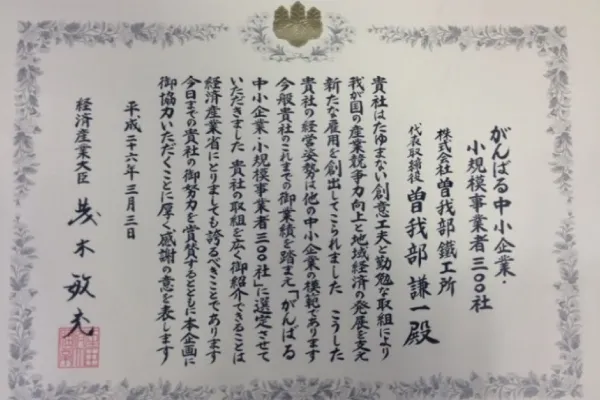 がんばる中小企業・
小規模事業者三〇〇社
株式会社曽我部鐵工所
代表取締役 曽我部 謙一殿
貴社はたゆまない創意工夫と勤勉な取組により
我が国の産業競争力向上と地域経済の発展を支え
新たな雇用を創出してこられました こうした
貴社の経営姿勢は他の中小企業の模範であります
今般貴社のこれまでの御業績を踏まえ「がんばる
中小企業・小規模事業者三〇〇社」に選定させて
いただきました 貴社の取組を広く御紹介できることは
経済産業省にとりましても誇るべきことであります
今日までの貴社の御努力を賞賛するとともに本企画に
御協力いただくことに厚く感謝の意を表します
平成二十六年三月三日
経済産業大臣 茂木敏充